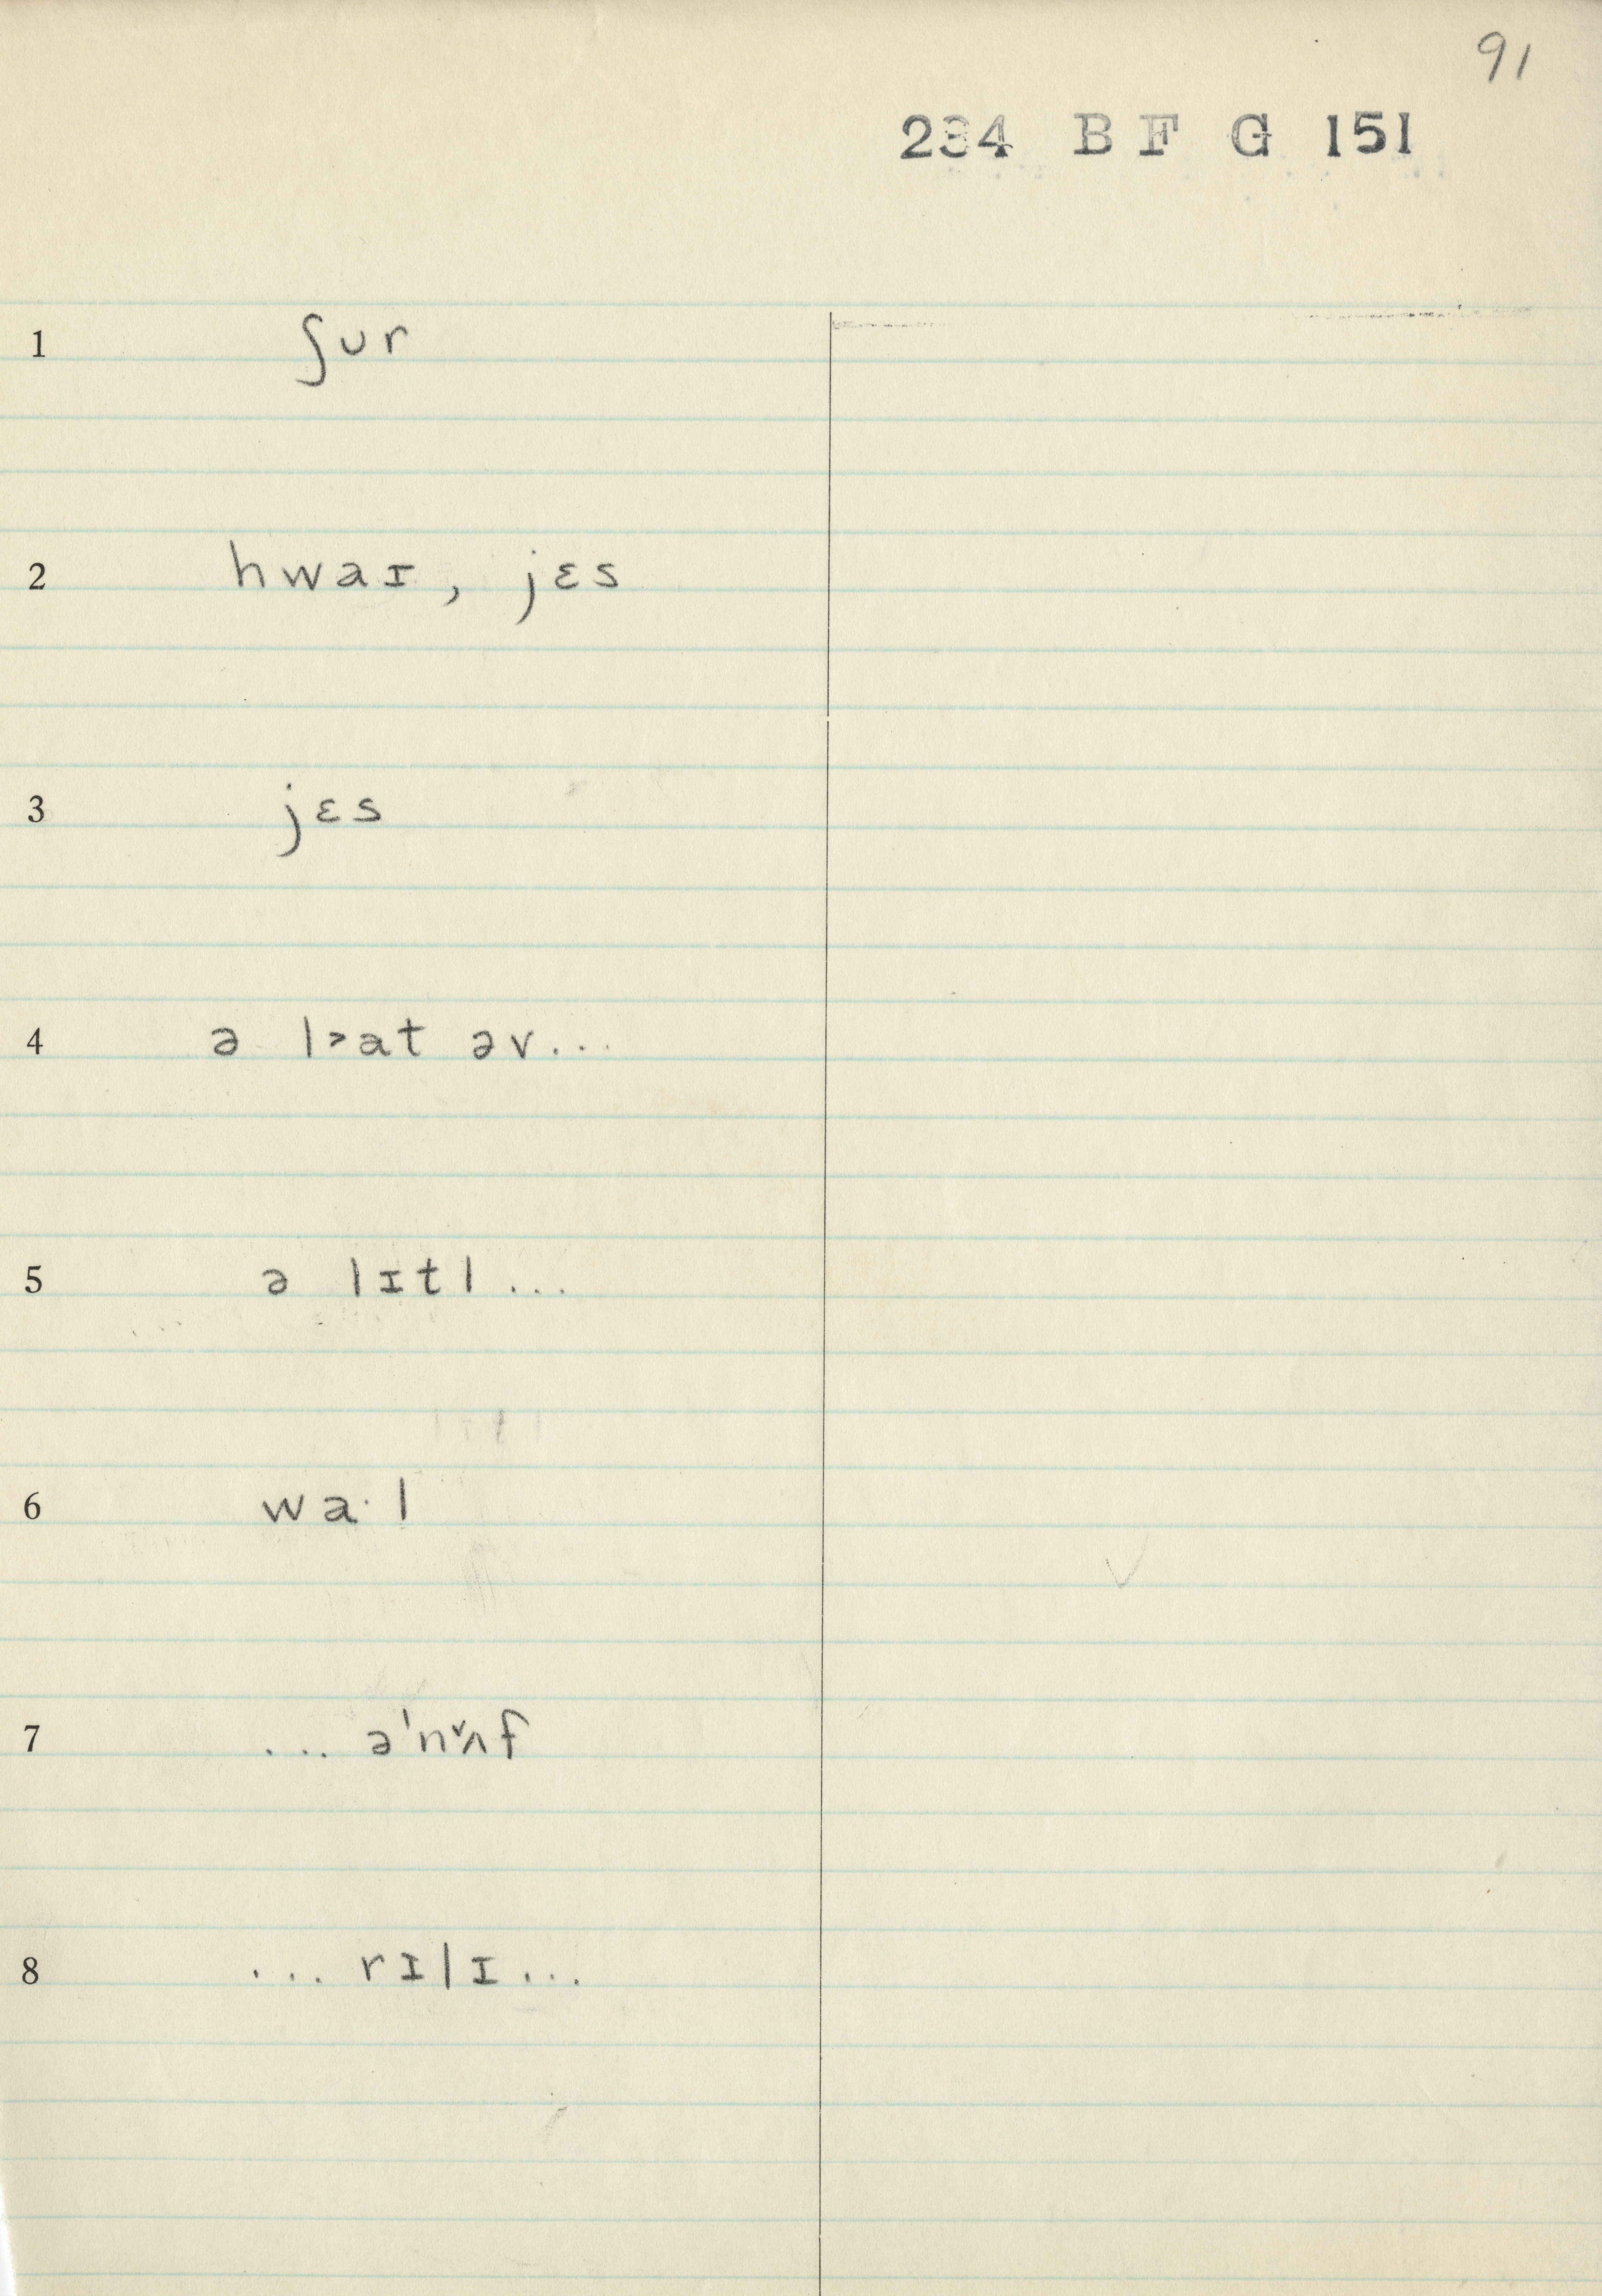 91
234 B F G 151
1 ʃur
2 hwaɪ, jɛs
3 jɛs
4 ə l˃at əv...
5 ə lɪtl...
6 wa·l
7 ... ə'nʌ̌f
8 ... rɪlɪ...